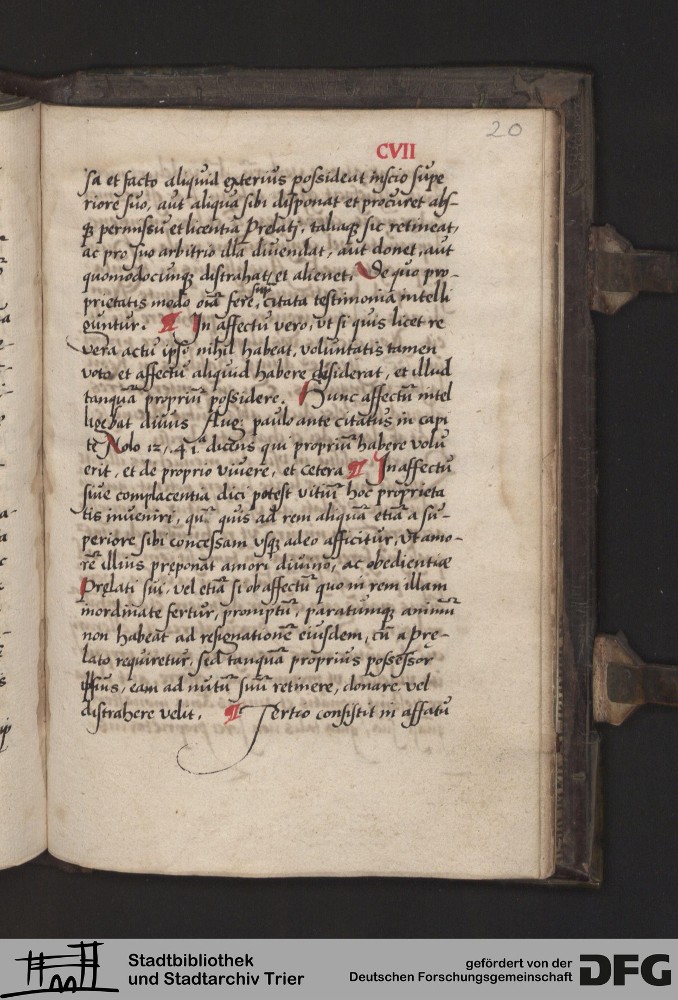 20
CVII
sa et facto aliquid exterius possideat inscio supe
riore suo, aut aliqua sibi disponat et procuret abs-
q̃ permissu et licentia Prelatj, taliaq̃ sic retineat,
ac pro suo arbitrio illa diuendat, aut donet, aut
quomodocunq̃ distrahat, et alienet, De quo pro-
prietatis modo oīa fere, supra citata testimonia intelli
guntur. ¶ In affectu vero, vt si quis licet re
vera actu ipso nihil habeat, voluntatis tamen
voto et affectu aliquid habere desiderat, et illud
tanquā propriū possidere. Hunc affectū intel
ligebat diuus Aug: paulo ante citatus in capi
te Nolo 12, q̄ 1ª dicens qui propriū habere volu
erit, et de proprio viuere, et cetera ¶ In affectu
siue complacentia dici potest vitiū hoc proprieta
tis inueniri, quū quis ad rem aliquā etiā a su-
periore sibi concessam vsq̃ adeo afficitur, vt amo-
rē illius preponat amori diuino, ac obedientiæ
Prelati sui, vel etiā si ob affectū quo in rem illam
inordinate fertur, promptū, paratumq̃ animū
non habeat ad resignationē eiusdem, cū a pre-
lato requiretur, sed tanquā proprius possessor
ipsius, eam ad nutū suū retinere, donare, vel
distrahere velit. ¶ Tertio consistit in affatu
Stadtbibliothek
und Stadtarchiv Trier
gefördert von der
Deutschen Forschungsgemeinschaft
DFG